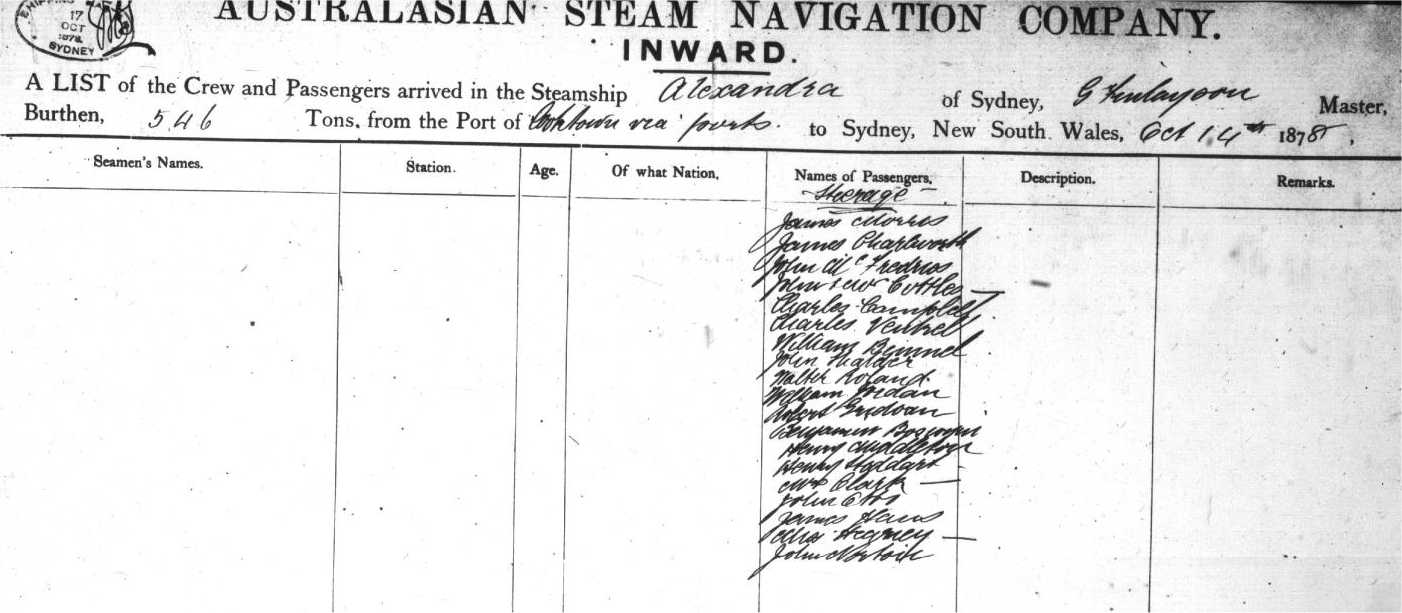 17
OCT
1878
SYDNEY
AUSTRALASIAN STEAM NAVIGATION COMPANY.
INWARD.
A LIST of the Crew and Passengers arrived in the Steamship Alexandra of Sydney, G Finlayson Master,
Burthen, 546 Tons, from the Port of Cooktown via ports. to Sydney, New South Wales, Oct 14th 1878,
Seamen's Names. Station. Age. Of what Nation. Names of Passengers. Description. Remarks.
Steerage
James Morris
James Charlworth
John Mc
John & Mr Cottle
Charles Campbell
Charles Ventrel
William Bimmel
John
Walter Roland
William Jordan
Robert
Benjamin
Henry Middleton
Henry Stoddart
Mrs Clark
John
James
Miss Hegney
John Norton